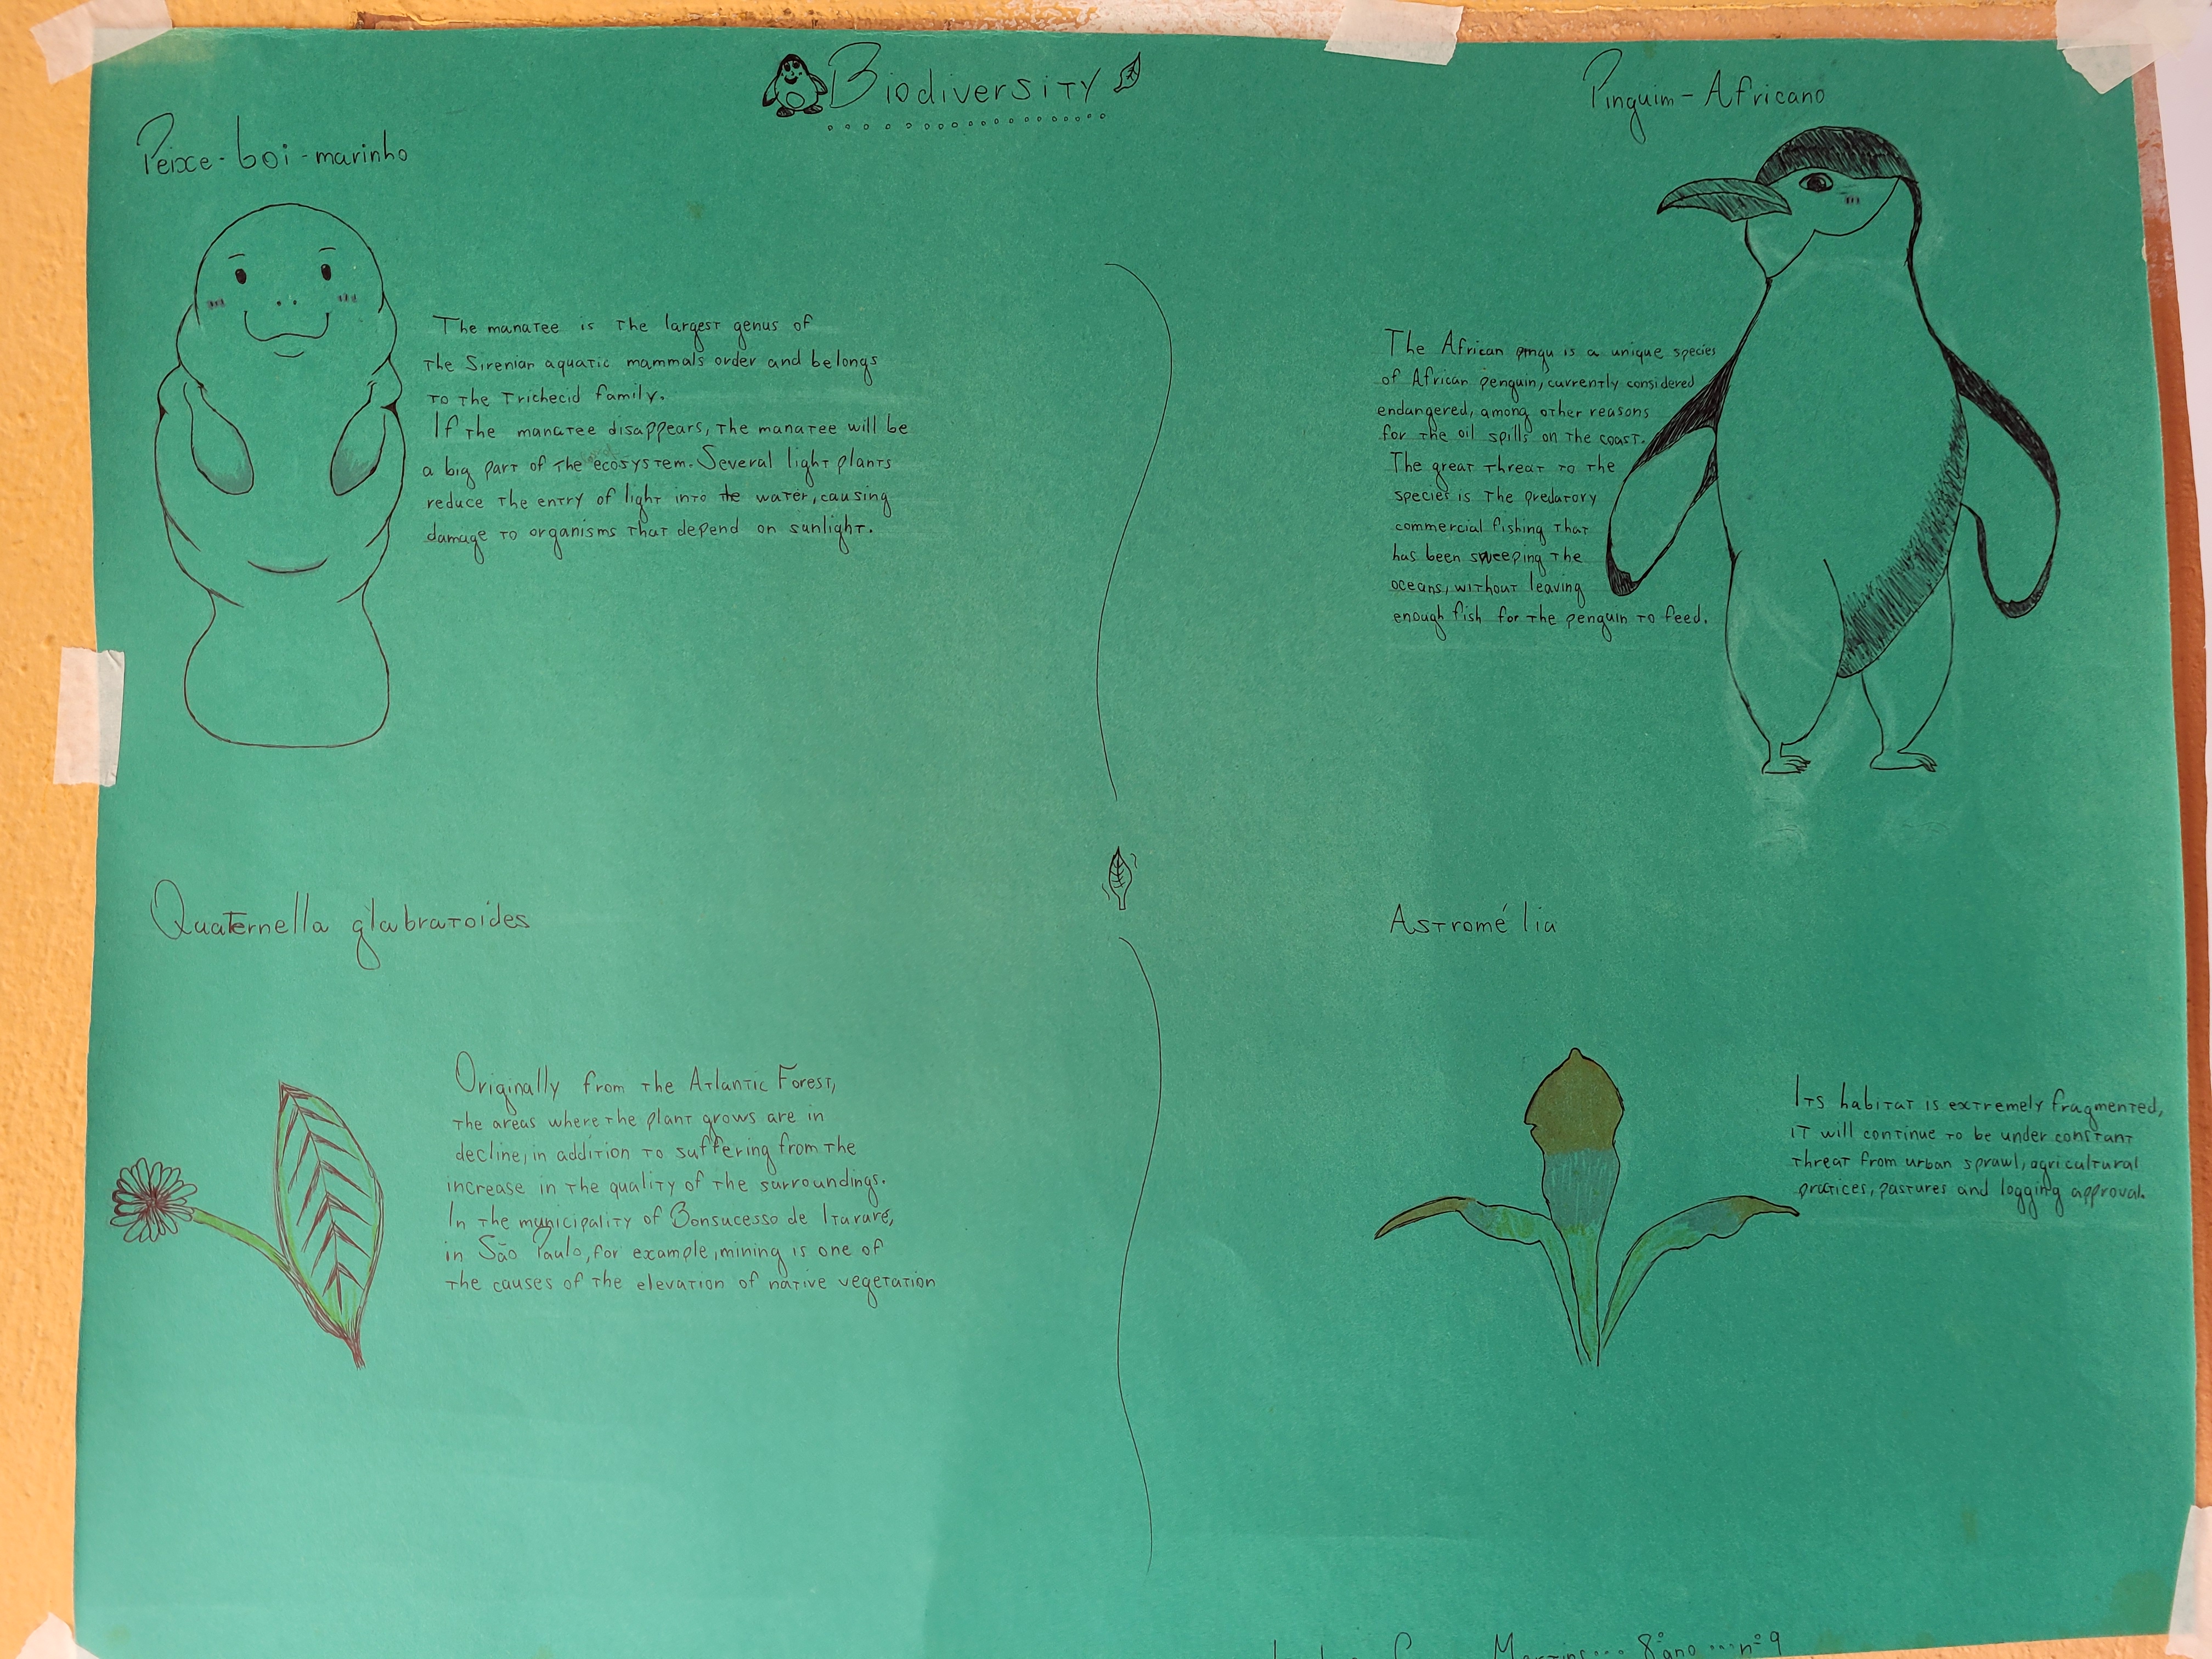 Biodiversity
Peixe-boi-marinho
The manatee is the largest genus of
the Sirenian aquatic mammals order and belongs
to the Trichecid family.
If the manatee disappears, the manatee will be
a big part of the ecosystem. Several light plants
reduce the entry of light into the water, causing
damage to organisms that depend on sunlight.
Pinguim-Africano
The African pingu is a unique species
of African penguin, currently considered
endangered, among other reasons
for the oil spills on the coast.
The great threat to the
species is the predatory
commercial fishing that
has been sweeping the
oceans, without leaving
enough fish for the penguin to feed.
Quaternella glabratoides
Originally from the Atlantic Forest,
the areas where the plant grows are in
decline, in addition to suffering from the
increase in the quality of the surroundings.
In the municipality of Bonsucesso de Itararé,
in São Paulo, for example, mining is one of
the causes of the elevation of native vegetation
Astromélia
Its habitat is extremely fragmented,
it will continue to be under constant
threat from urban sprawl, agricultural
practices, pastures and logging approval.
8º ano .... nº 9